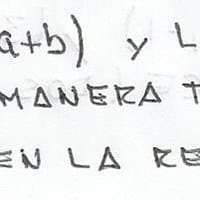 a+b) y L
MANERA T
EN LA RE